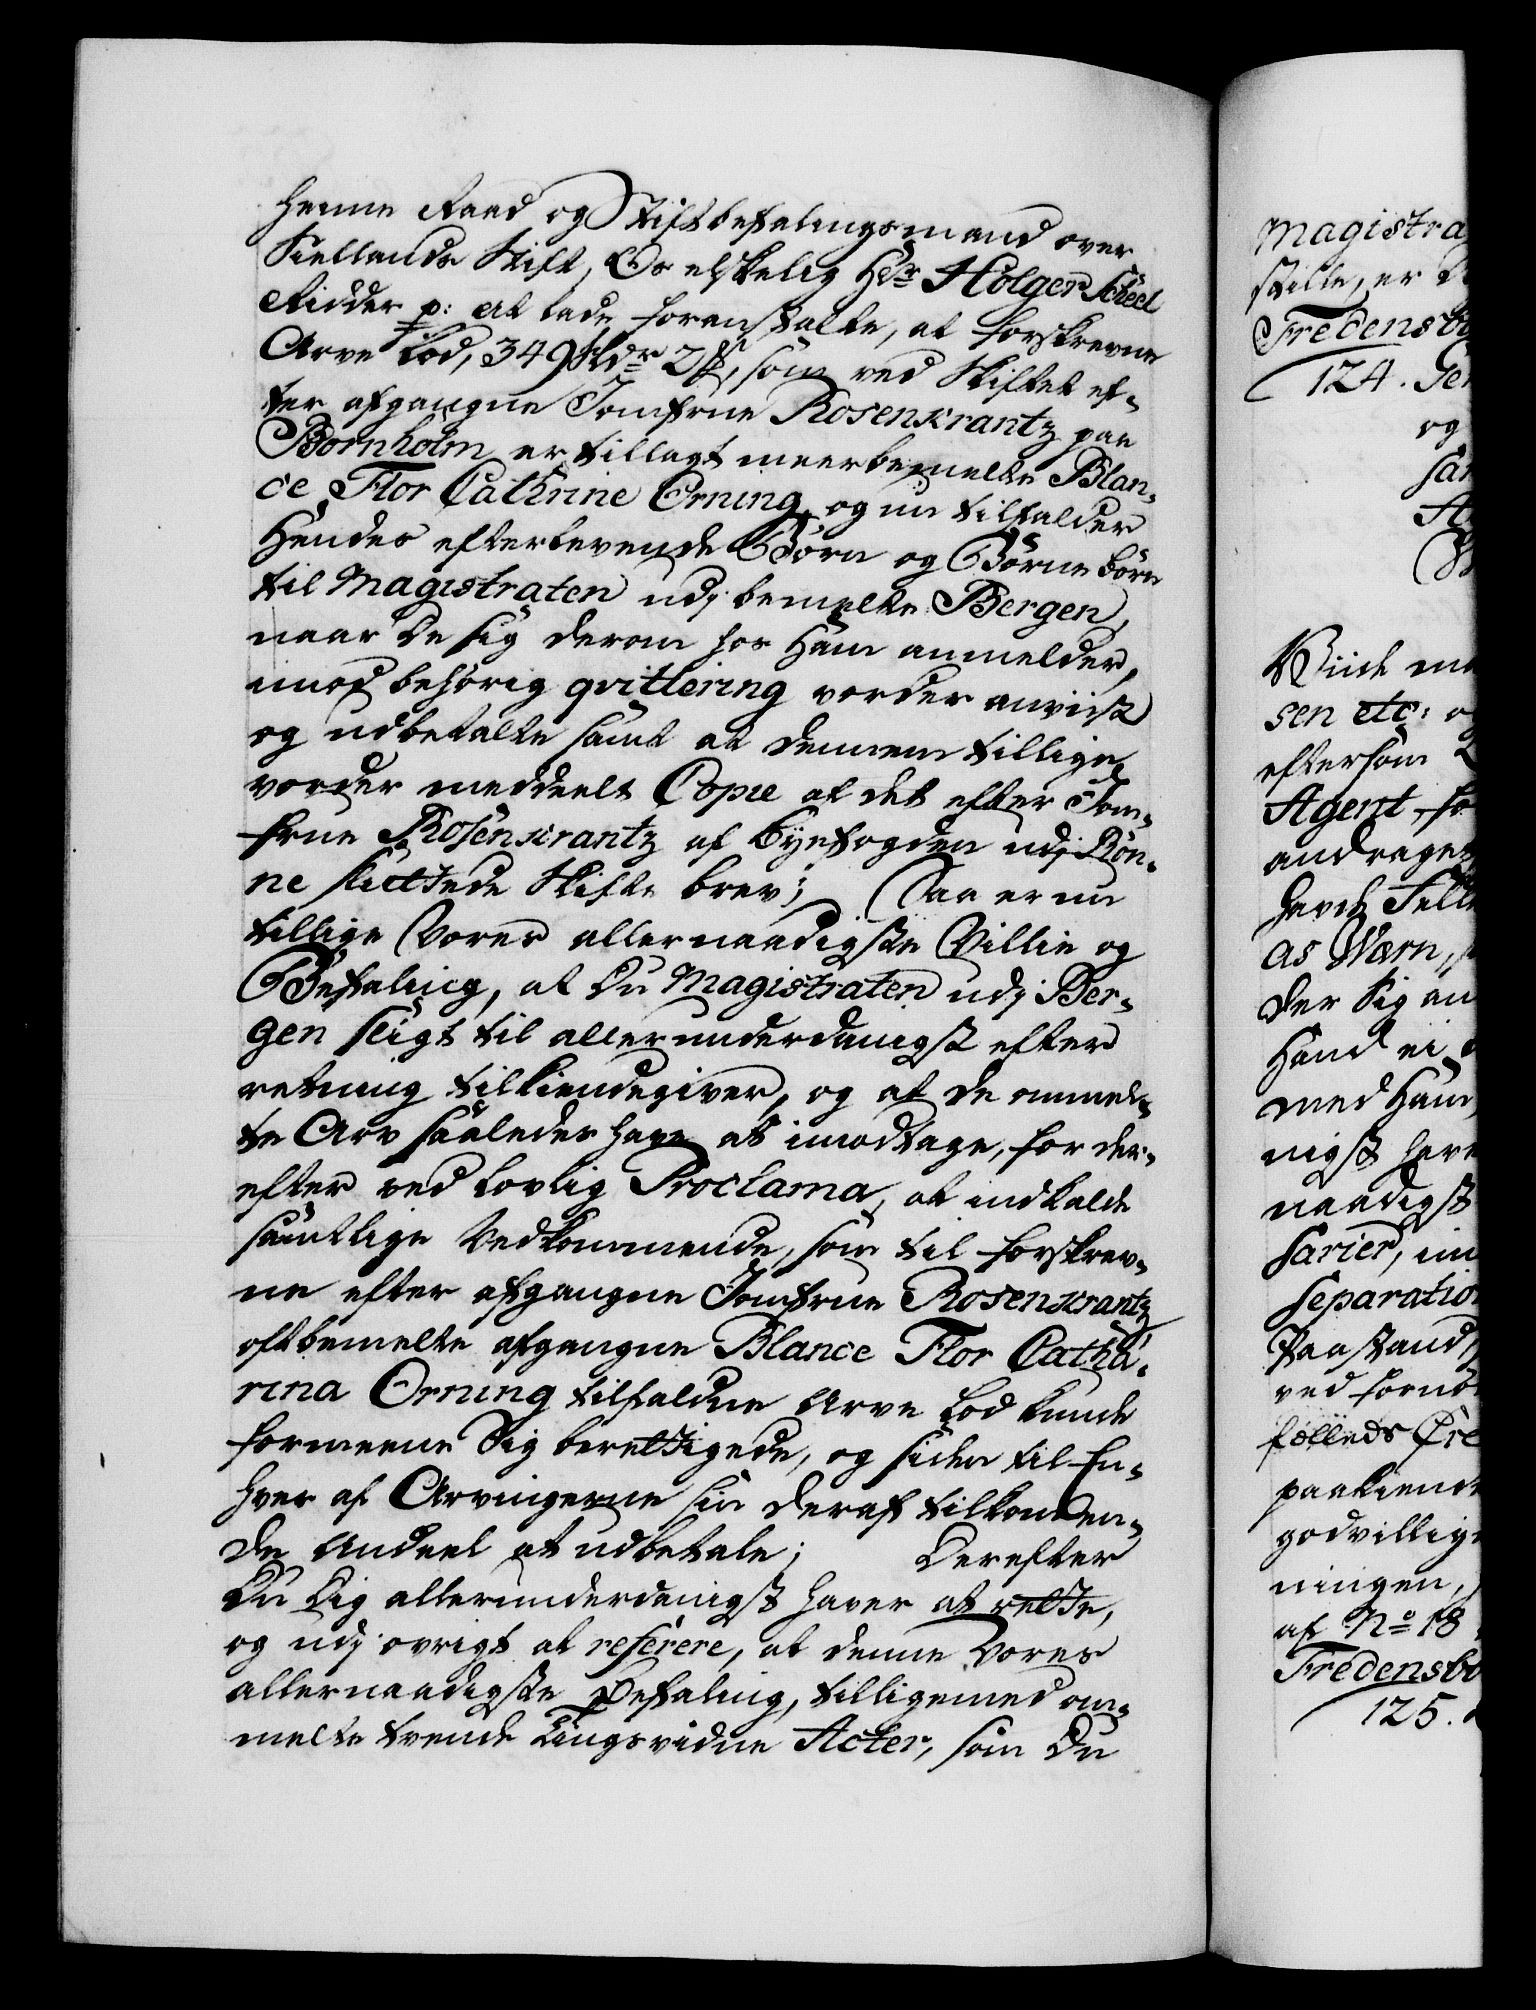 heime Raad og Stiftbefalingsmand over
Siellands Stift, Os elskelig Hr: Holger Scheel
Ridder p: at lade foranstalte, at forskrevne
Arve Lod, 349 Rdr 2 ß, som ved Skiftet ef-
ter afgangne Jomfrue Rosenkrantz paa
Bornholm er tillagt meerbemelte Blan-
ce Flor Cathrine Orning, og nu tilfalder
Hendes efterlevende Börn og Börne börn
til Magistraten udj bemelte Bergen,
naar De sig derom hos Ham anmelder,
imod behörig qvittering vorder anviist
og udbetalte samt at dennem tillige
vorder meddeelt Copie af det efter Jom-
frue Rosenkrantz af Byefogden udj Rön-
ne sluttede Skifte brev; Saa er nu
tillige Vores allernaadigste Villie og
Befaling, at Du Magistraten udj Ber-
gen sligt til allerunderdanigst efter
retning tilkiendegiver, og at De ommel-
te Arv saaledes have at imodtage, for der-
efter ved lovlig Proclama, at indkalde
samtlige Vedkommende, som til forskrev-
ne efter afgangne Jomfrue Rosenkrantz
oftbemelte afgangne Blance Flor Catha-
rina Orning tilfaldne Arve Lod kunde
formeene Sig berettigede, og siden til En-
hver af Arvingerne sin deraf tilkommen-
de Andeel at udbetale; Derefter
Du Dig allerunderdanigst haver at rette,
og udj övrigt at referere, at denne Vores
allernaadigste Befaling, tilligemed om-
melte tvende Tingsvidne Acter, som Du
Magistra
stille, er
Fredensb
124. Ge
og
Sa
A
Viide
sen etc:
eftersom
Agent
andrage
havd Fell
as Wærn,
der Sig an
Hand ei
med Ham
nigst have
naadigst
sarier, im
Separation
Paastand
ved fornö
fælleds Cre
paakiend
godvillig
ningen,
af No 18
Fredensbo
125.